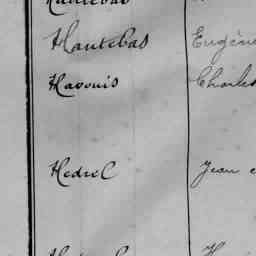 Hautebas Eugène
Havouis Charles
Hedre C Jean